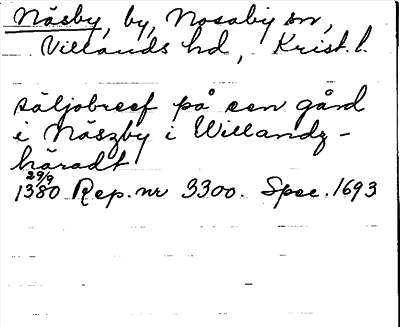 Näsby, by, Nosaby sn,
Villands hd, Krist. l.
säljobreef på een gård
i Näszby i Willandz-
häradt
29/9
1380 Rep. nr 3300. Spec. 1693